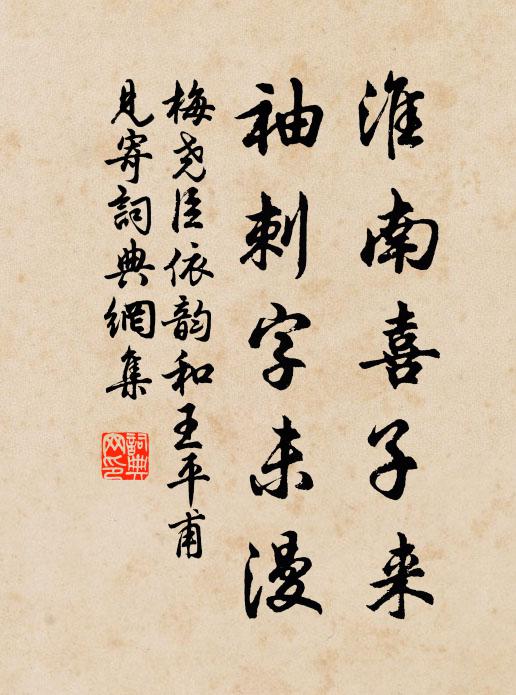 淮南喜子来
袖刺字未漫
梅尧臣依韵和王平甫
见寄词典網集
詞典網印